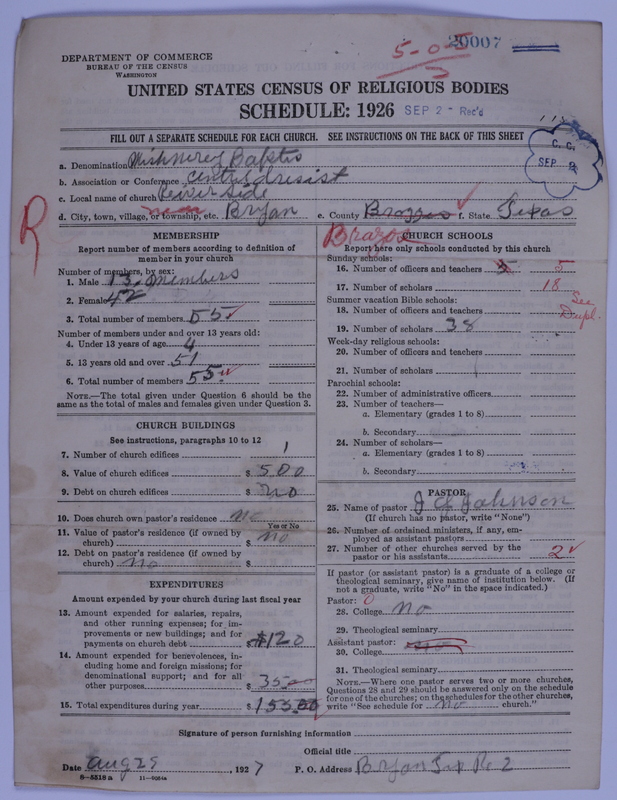 5-0-5 20007
DEPARTMENT OF COMMERCE
BUREAU OF THE CENSUS
WASHINGTON
UNITED STATES CENSUS OF RELIGIOUS BODIES
SCHEDULE: 1926 SEP 2 - Rec'd
FILL OUT A SEPARATE SCHEDULE FOR EACH CHURCH. SEE INSTRUCTIONS ON THE BACK OF THIS SHEET
C. C.
SEP 2
a. Denomination
b. Association or Conference
c. Local name of church
d. City, town, village, or township, etc. Bryan e. County Brazos f. State Texas
R
Brazos
MEMBERSHIP
Report number of members according to definition of
member in your church
Number of members, by sex:
1. Male 13. Members
2. Female 42
3. Total number of members 55
Number of members under and over 13 years old:
4. Under 13 years of age 4
5. 13 years old and over 51
6. Total number of members 55
NOTE.—The total given under Question 6 should be the
same as the total of males and females given under Question 3.
CHURCH BUILDINGS
See instructions, paragraphs 10 to 12
7. Number of church edifices 1
8. Value of church edifices $ 500
9. Debt on church edifices $ no
10. Does church own pastor's residence no
Yes or No
11. Value of pastor's residence (if owned by
church) $ no
12. Debt on pastor's residence (if owned by
church) no $
EXPENDITURES
Amount expended by your church during last fiscal year
13. Amount expended for salaries, repairs,
and other running expenses; for im-
provements or new buildings; and for
payments on church debt $ $120
14. Amount expended for benevolences, in-
cluding home and foreign missions; for
denominational support; and for all
other purposes $ 35 00
15. Total expenditures during year $ 155.00
CHURCH SCHOOLS
Report here only schools conducted by this church
Sunday schools:
16. Number of officers and teachers 5 5
17. Number of scholars 18
Summer vacation Bible schools:
18. Number of officers and teachers
See
Dupl.
19. Number of scholars 38
Week-day religious schools:
20. Number of officers and teachers
21. Number of scholars
Parochial schools:
22. Number of administrative officers
23. Number of teachers—
a. Elementary (grades 1 to 8)
b. Secondary
24. Number of scholars—
a. Elementary (grades 1 to 8)
b. Secondary
PASTOR
25. Name of pastor Johnson
(If church has no pastor, write "None")
26. Number of ordained ministers, if any, em-
ployed as assistant pastors
27. Number of other churches served by the
pastor or his assistants 2
If pastor (or assistant pastor) is a graduate of a college or
theological seminary, give name of institution below. (If
not a graduate, write "No" in the space indicated.)
Pastor: 0
28. College no
29. Theological seminary
Assistant pastor:
30. College
31. Theological seminary
NOTE.—Where one pastor serves two or more churches,
Questions 28 and 29 should be answered only on the schedule
for one of the churches; on the schedules for the other churches,
write "See schedule for no church."
Signature of person furnishing information
Official title
Date Aug 29, 1927 P. O. Address Bryan Tex Rt 2
8—5318 a 11—9054a